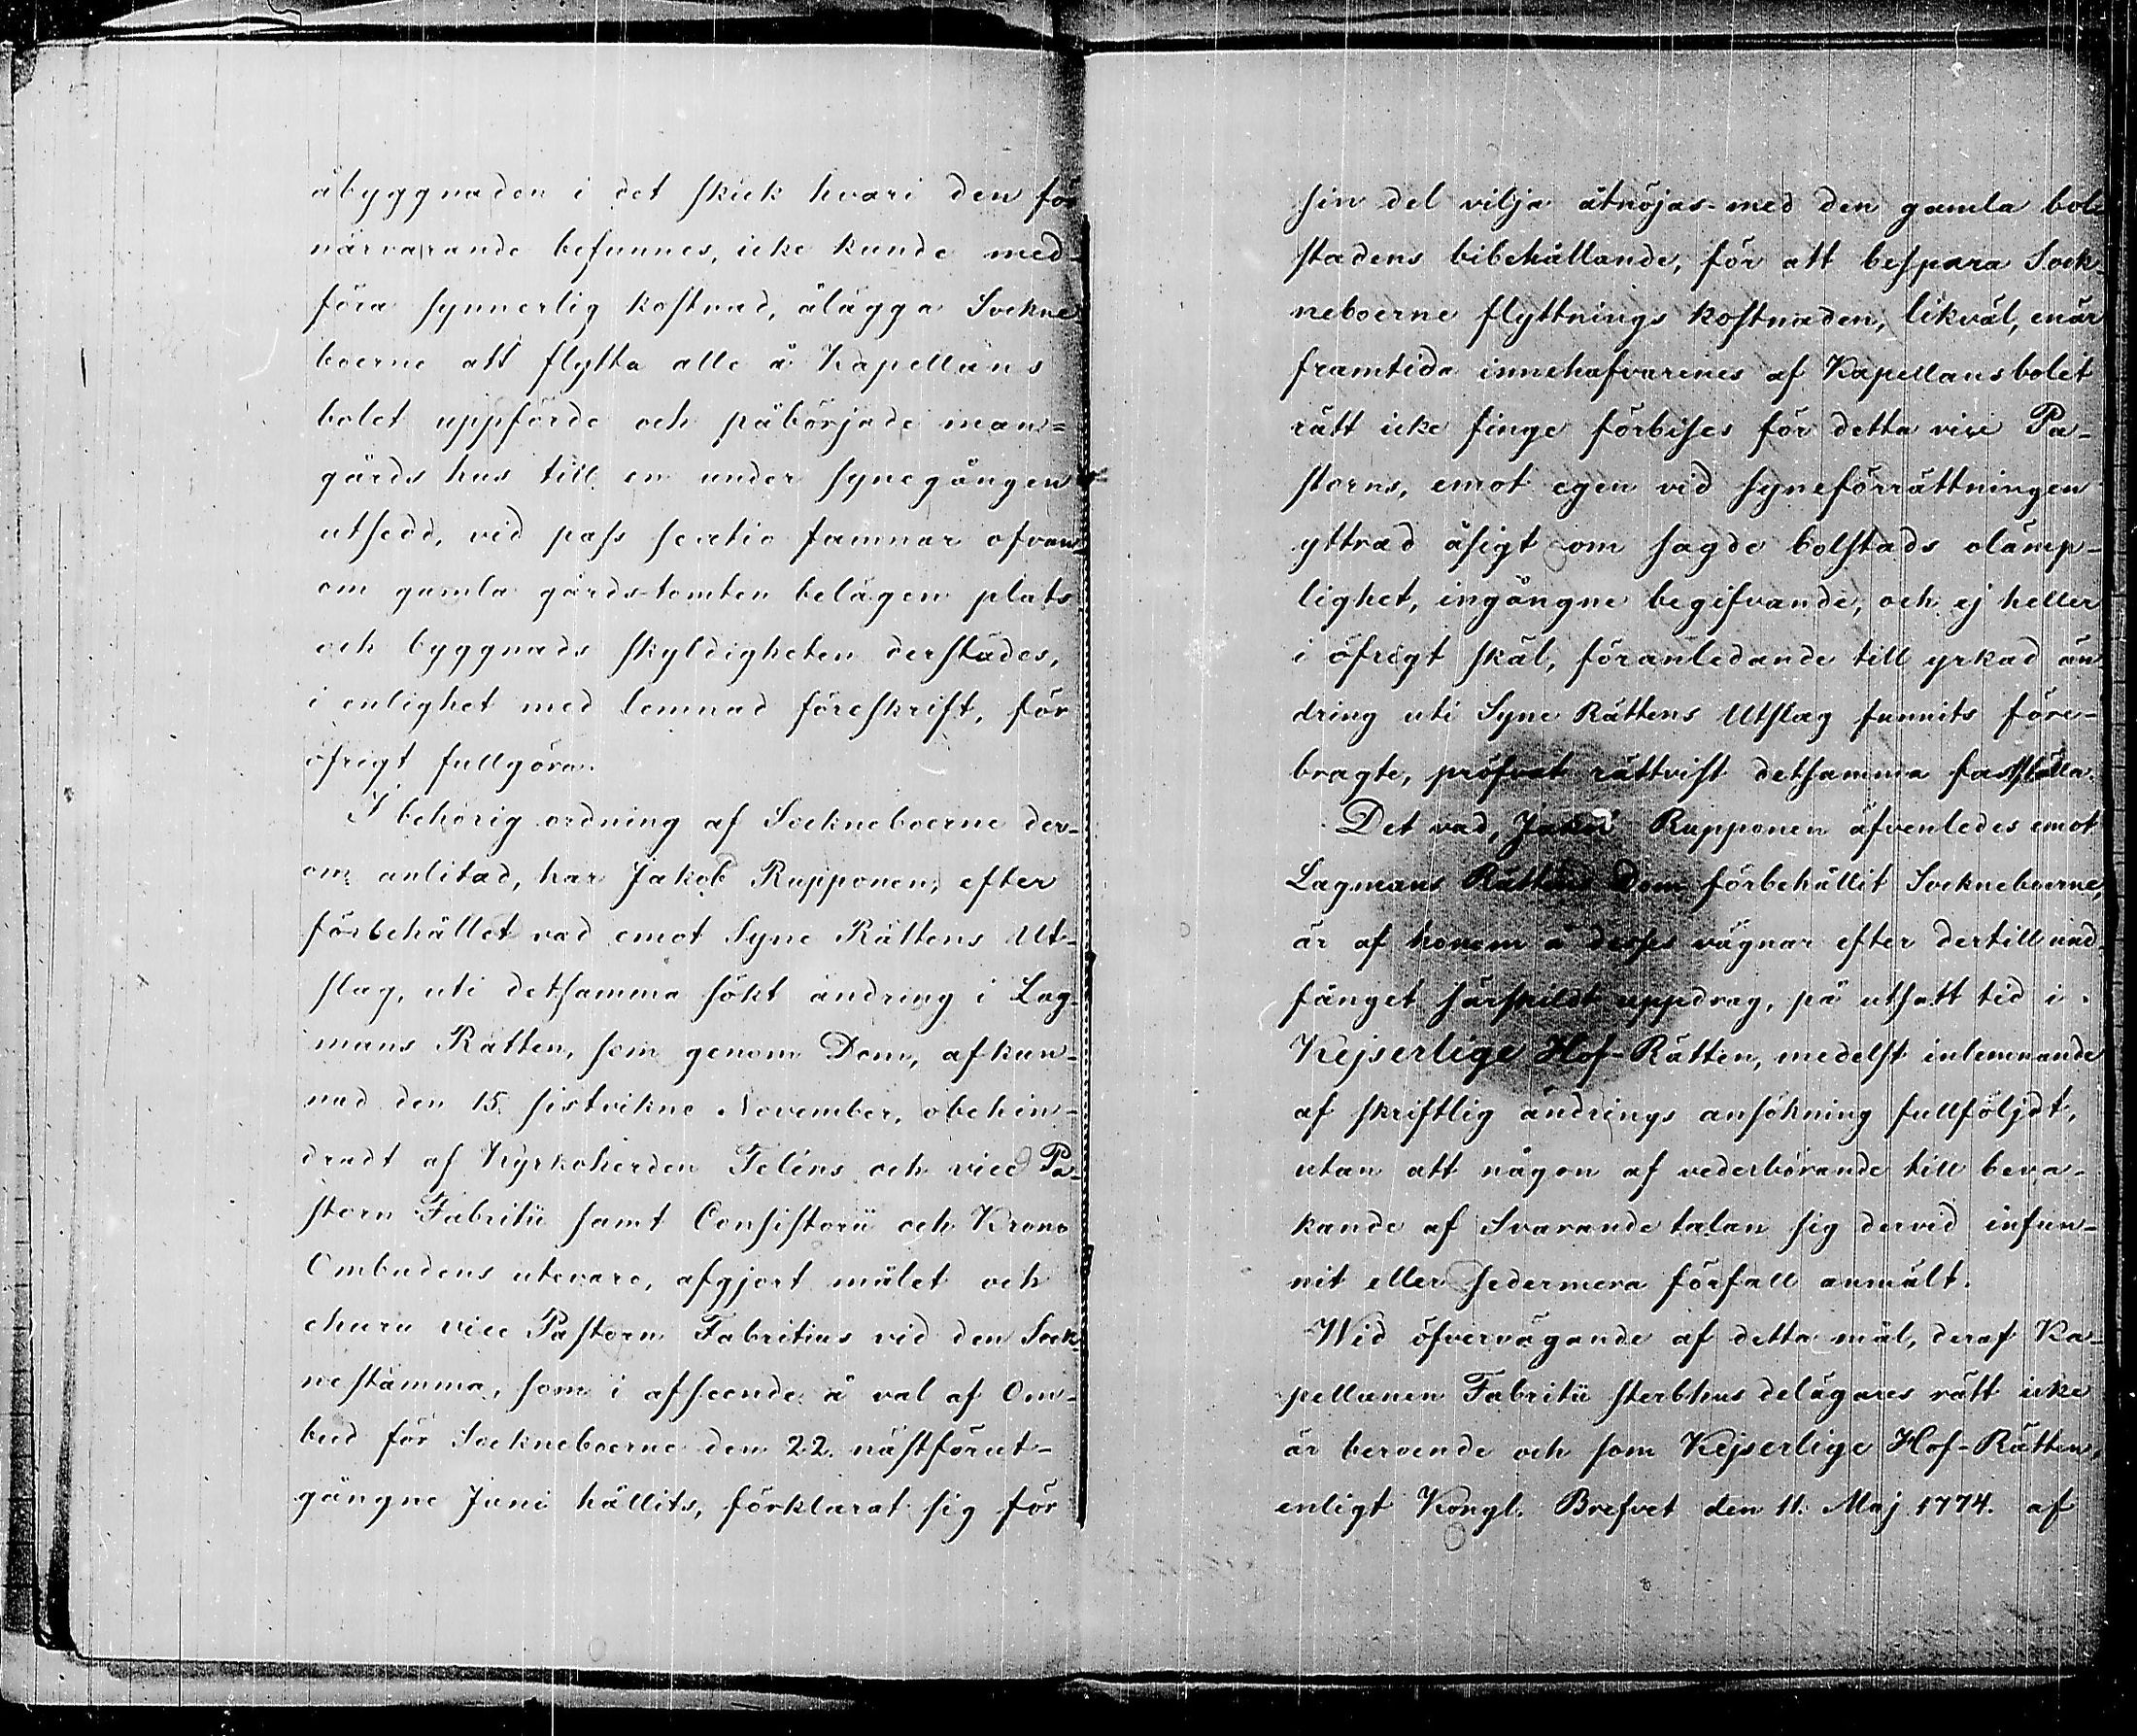 åbyggnaden i det skick hvari den för
närvarande befunnes, icke kunde med-
föra synnerlig kostnad, ålägga Sockne
boerne att flytta alle å Kapellans
bolet uppförde och påbörjade man-
gårds hus till en under synegången
utsedd, vid pass sextio famnar ofvan
om gamla gårds-tomten belägen plats
och byggnads skyldigheten derstädes,
i enlighet med lemnad föreskrift, för
öfrigt fullgöra.
I behörig ordning af Sockneboerne der-
om anlitad, har Jakob Rupponen, efter
förbehållet vad emot Syne Rättens Ut-
slag, uti detsamma sökt ändring i Lag-
mans Rätten, som genom Dom, afkun-
nad den 15. sistvikne November, obehin-
dradt af Kyrkoherden Teléns och vice Pa-
storn Fabritii samt Consistorii och Krono
Ombudens utevaro, afgjort målet och
ehuru vice Pastorn Fabritius vid den Sock-
nestämma, som i afseende å val af Om-
bud för Sockneboerne den 22. nästförut-
gångne Juni hållits, förklarat sig för
sin del vilja åtnöjas med den gamla bol-
stadens bibehållande, för att bespara Sock-
neboerne flyttnings kostnaden, likväl, enär
framtida innehafvarenes af Kapellansbolet
rätt icke finge förbises för detta vice Pa-
storns, emot egen vid syneförrättningen
yttrad åsigt om sagde bolstads olämp-
lighet, ingångne begifvande, och ej heller
i öfrigt skäl, föranledande till yrkad än-
dring uti Syne Rättens Utslag funnits före-
bragte, pröfvat rättvist detsamma fastställa.
Det vad, Jakob Rupponen äfvenledes emot
Lagmans Rättens Dom förbehållit Sockneboerne,
är af honom å desses vägnar efter dertill und-
fånget särskildt uppdrag, på utsatt tid i
Kejserlige Hof-Rätten, medelst inlemnande
af skriftlig ändrings ansökning fullföljdt,
utan att någon af vederbörande till beva-
kande af Svarande talan sig dervid infun-
nit eller sedermera förfall anmält.
Wid öfvervägande af detta mål, deraf Ka-
pellanen Fabritii sterbhus delägares rätt icke
är beroende och som Kejserlige Hof-Rätten,
enligt Kongl. Brefvet den 11. Maj 1774. af